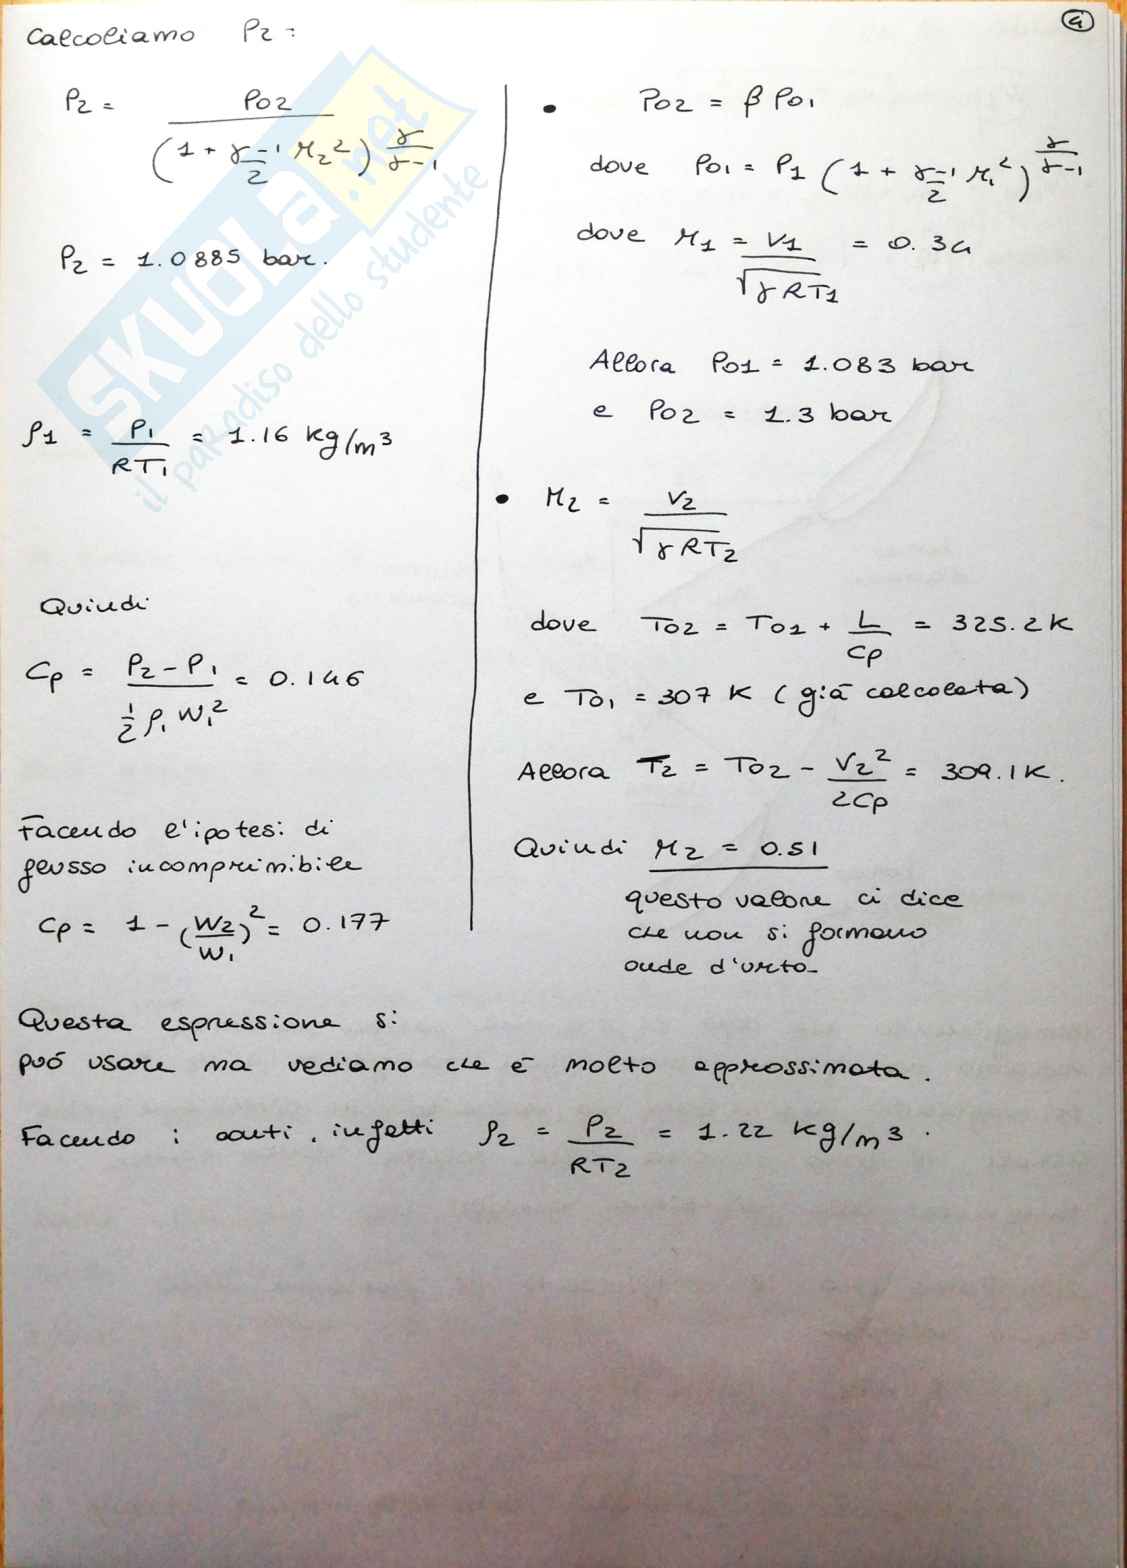 ④
Calcoliamo P2 :
P2 = P02 / (1 + γ-1/2 M2²)^γ/γ-1
P2 = 1.0885 bar.
ρ1 = P1/RT1 = 1.16 kg/m³
Quindi
Cp = P2 - P1 / ½ ρ1 W1² = 0.146
Facendo l'ipotesi di
flusso incomprimibile
Cp = 1 - (W2/W1)² = 0.177
• P02 = β P01
dove P01 = P1 (1 + γ-1/2 M1²)^γ/γ-1
dove M1 = V1/√γRT1 = 0.34
Allora P01 = 1.083 bar
e P02 = 1.3 bar
• M2 = V2/√γRT2
dove T02 = T01 + L/Cp = 325.2 K
e T01 = 307 K (già calcolata)
Allora T2 = T02 - V2²/2Cp = 309.1 K.
Quindi M2 = 0.51
questo valore ci dice
che non si formano
onde d'urto_
Questa espressione si
può usare ma vediamo che è molto approssimata.
Facendo i conti, infatti ρ2 = P2/RT2 = 1.22 kg/m³.
SKUOLA.net
il paradiso dello studente